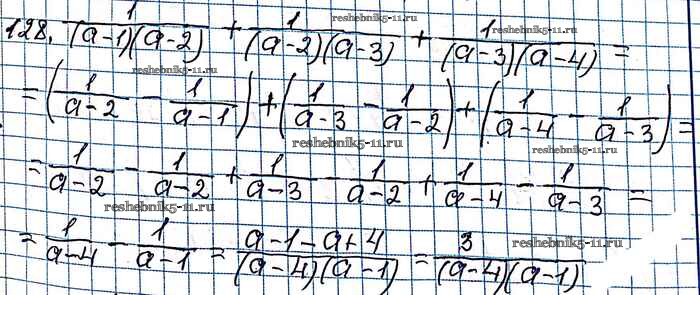 128. 1/((a-1)(a-2)) + 1/((a-2)(a-3)) + 1/((a-3)(a-4)) =
= (1/(a-2) - 1/(a-1)) + (1/(a-3) - 1/(a-2)) + (1/(a-4) - 1/(a-3)) =
= 1/(a-2) - 1/(a-2) + 1/(a-3) - 1/(a-2) + 1/(a-4) - 1/(a-3) =
= 1/(a-4) - 1/(a-1) = (a-1-a+4)/((a-4)(a-1)) = 3/((a-4)(a-1))
reshebnik5-11.ru
reshebnik5-11.ru
reshebnik5-11.ru
reshebnik5-11.ru
reshebnik5-11.ru
reshebnik5-11.ru
reshebnik5-11.ru